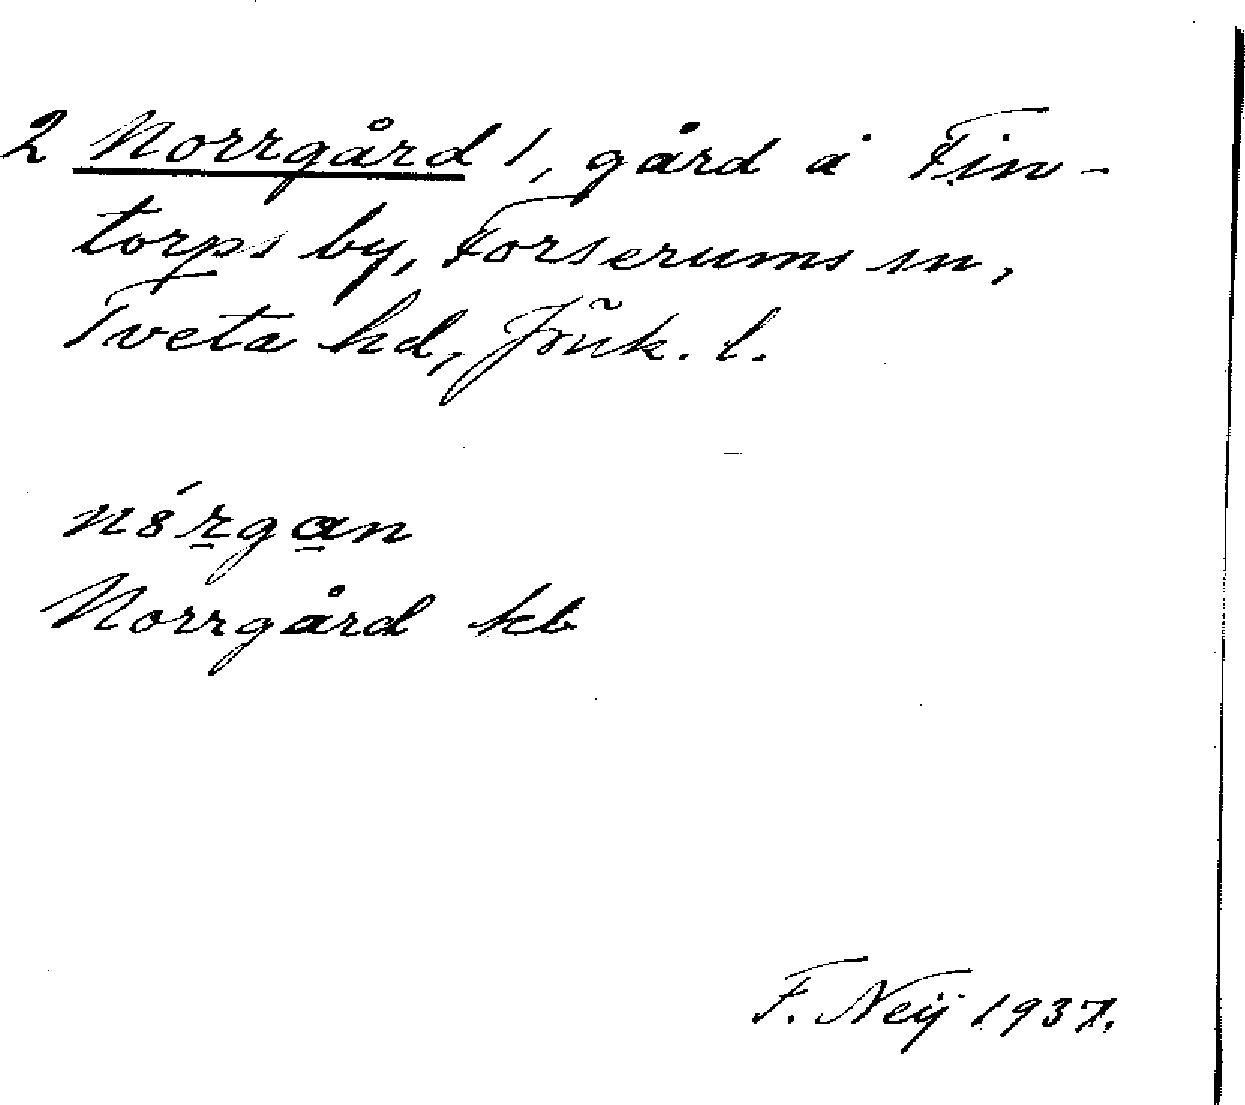 2 Norrgård 1, gård å Fin-
torps by, Forserums sn,
Tveta hd, Jönk. l.
nórgan
Norrgård kb
F. Neij 1937.